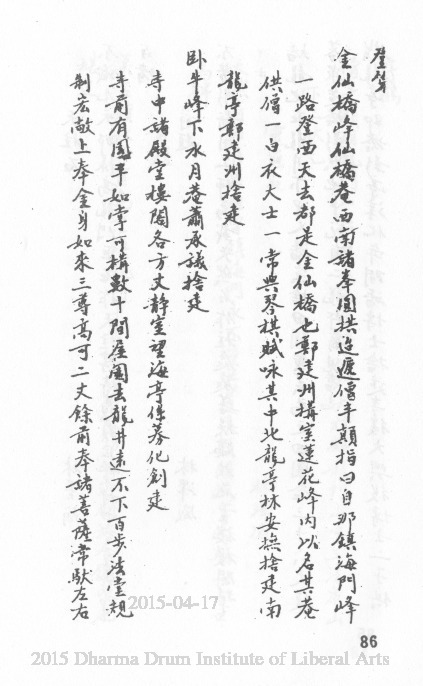 金仙橋峰仙橋菴西南諸峯圍拱迤邐僧半顛指曰自那鎮海門峰
一路登西天去都是金仙橋也鄭建州構室蓮花峰內以名其菴
供僧一白衣大士一常與琴棋賦咏其中北龍亭林安撫捨建南
龍亭鄭建州捨建
卧牛峰下水月菴蕭承議捨建
寺中諸殿堂樓閣各方丈靜室望海亭係募化創建
寺前有圍平如掌可構數十間屋闊去龍井遠不下百步法堂規
制宏敞上奉金身如來三尊高可二丈餘前奉諸菩薩韋馱左右
86
2015-04-17
2015 Dharma Drum Institute of Liberal Arts